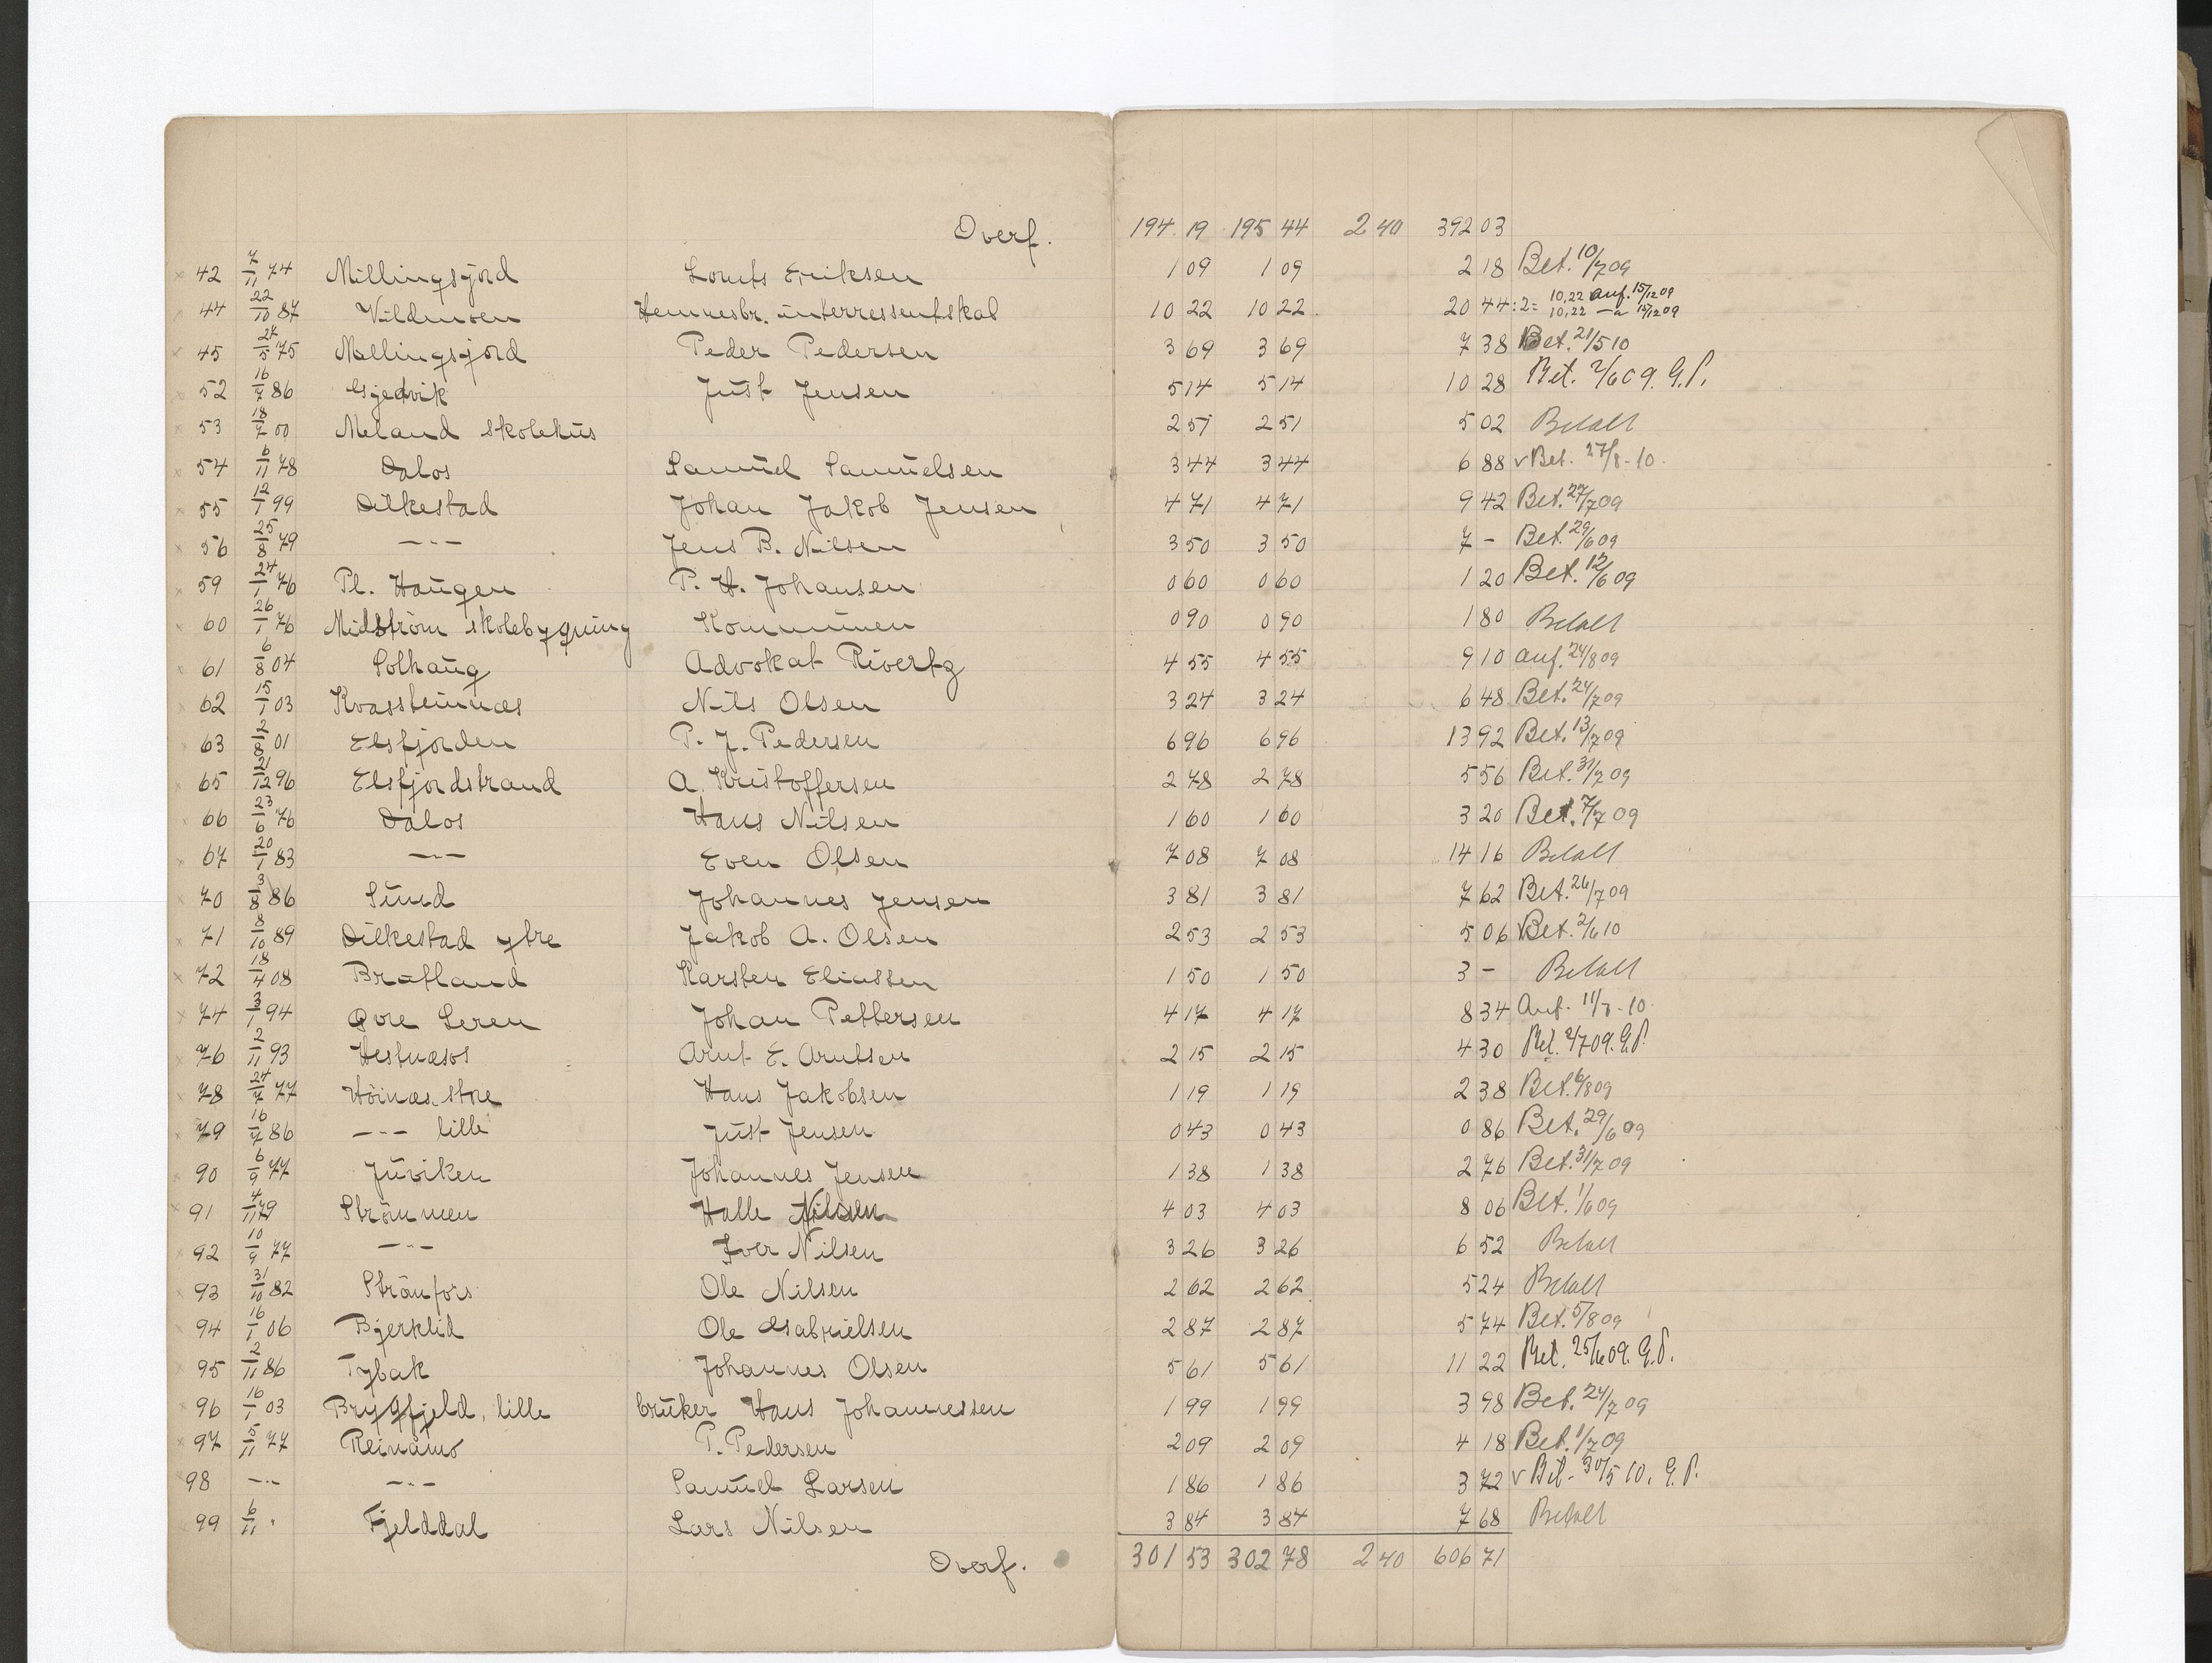 Overf. 194 19 195 44 2 40 392 03
× 42 7/11 74 Millingsjord Lorents Eriksen 1 09 1 09 2 18 Bet. 10/7 09
44 22/10 87 Vildmoen Hemnesbr. interressentskab 10 22 10 22 20 44 :2= 10,22 anf. 15/12 09
10,22 — " 14/12 09
× 45 24/5 75 Millingsjord Peder Pedersen 3 69 3 69 7 38 Bet. 21/5 10
× 52 16/7 86 Gjedvik Just Jensen 5 14 5 14 10 28 Bet. 2/6 09. G.P.
× 53 18/7 00 Meland skolehus 2 51 2 51 5 02 Betalt
× 54 6/11 78 Dalos Samuel Samuelsen 3 44 3 44 6 88 v Bet. 27/8-10.
× 55 12/1 99 Dilkestad Johan Jakob Jensen 4 71 4 71 9 42 Bet. 27/7 09
× 56 25/8 79 —"— Jens B. Nilsen 3 50 3 50 7 – Bet. 29/6 09
× 59 24/1 76 Pl. Haugen P. H. Johansen 0 60 0 60 1 20 Bet. 12/6 09
× 60 26/1 76 Midström skolebygning Kommunen 0 90 0 90 1 80 Betalt
× 61 6/8 04 Solhaug Advokat Rivertz 4 55 4 55 9 10 anf. 24/8 09
× 62 15/1 03 Kvassteinnæs Nils Olsen 3 24 3 24 6 48 Bet. 24/7 09
× 63 2/8 01 Elsfjorden P. J. Pedersen 6 96 6 96 13 92 Bet. 13/7 09
× 65 21/12 96 Elsfjordstrand A. Kristoffersen 2 78 2 78 5 56 Bet. 31/7 09
× 66 23/6 76 Dalos Hans Nilsen 1 60 1 60 3 20 Bet. 7/7 09
× 67 20/1 83 —"— Even Olsen 7 08 7 08 14 16 Betalt
× 70 3/8 86 Sund Johannes Jensen 3 81 3 81 7 62 Bet. 26/7 09
× 71 8/10 89 Dilkestad ytre Jakob A. Olsen 2 53 2 53 5 06 v Bet. 2/6 10
× 72 18/4 08 Bratland Karsten Eliassen 1 50 1 50 3 – Betalt
× 74 3/1 94 Øvre Leren Johan Pettersen 4 17 4 17 8 34 Anf. 11/7-10.
× 76 2/11 93 Hestnæsos Arnt E. Arntsen 2 15 2 15 4 30 Bet. 2/7 09. G.P.
× 78 24/7 77 Höinæs. stre Hans Jakobsen 1 19 1 19 2 38 Bet. 6/8 09
× 79 16/7 86 —"— lille Just Jensen 0 43 0 43 0 86 Bet. 29/6 09
× 90 6/9 77 Juviken Johannes Jensen 1 38 1 38 2 76 Bet. 31/7 09
× 91 4/11 79 Strömmen Halle Nilsen 4 03 4 03 8 06 Bet. 1/6 09
× 92 10/9 77 —"— Iver Nilsen 3 26 3 26 6 52 Betalt
× 93 31/10 82 Strönfors Ole Nilsen 2 62 2 62 5 24 Betalt
× 94 16/1 06 Bjerklid Ole Gabrielsen 2 87 2 87 5 74 Bet. 5/8 09
× 95 2/11 86 Tybak Johannes Olsen 5 61 5 61 11 22 Bet. 25/6 09. G.P.
× 96 16/1 03 Brygfjeld, lille bruker Hans Johannessen 1 99 1 99 3 98 Bet. 24/7 09
× 97 5/11 77 Reinamo P. Pedersen 2 09 2 09 4 18 Bet. 1/7 09
98 —"— —"— Samuel Larsen 1 86 1 86 3 72 v Bet. 30/5 10. G.P.
99 6/11 " Fjelddal Lars Nilsen 3 84 3 84 7 68 Betalt
Overf. 301 53 302 78 2 40 606 71